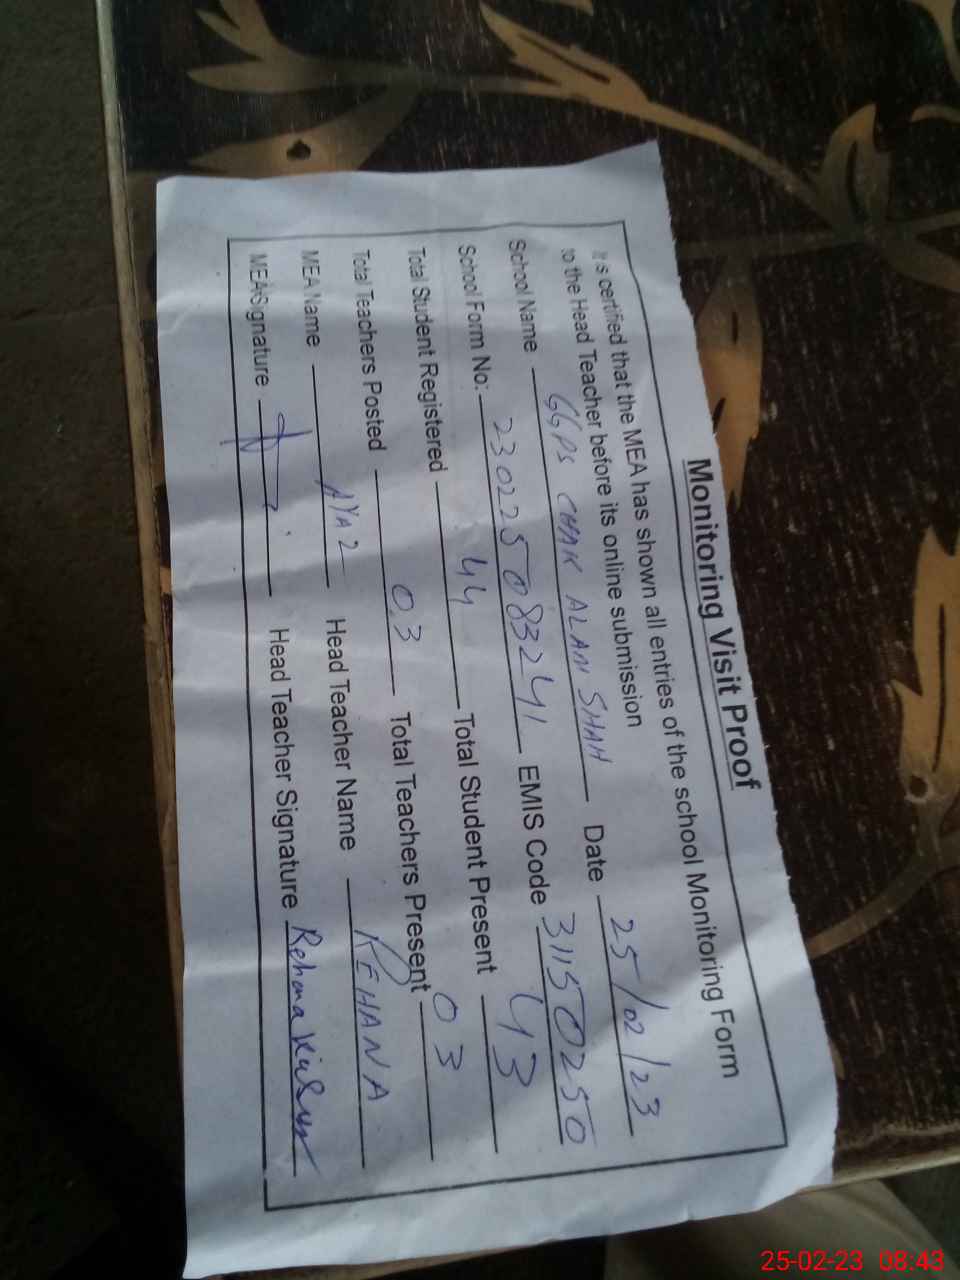 Monitoring Visit Proof
It is certified that the MEA has shown all entries of the school Monitoring Form
to the Head Teacher before its online submission
School Name GGPS CHAK ALAM SHAH Date 25/02/23
School Form No: 23022508324 1 EMIS Code 31150250
Total Student Registered 44 Total Student Present 43
Total Teachers Posted 03 Total Teachers Present 03
MEA Name Head Teacher Name REHANA
MEA Signature Head Teacher Signature Rehana
25-02-23 08:43